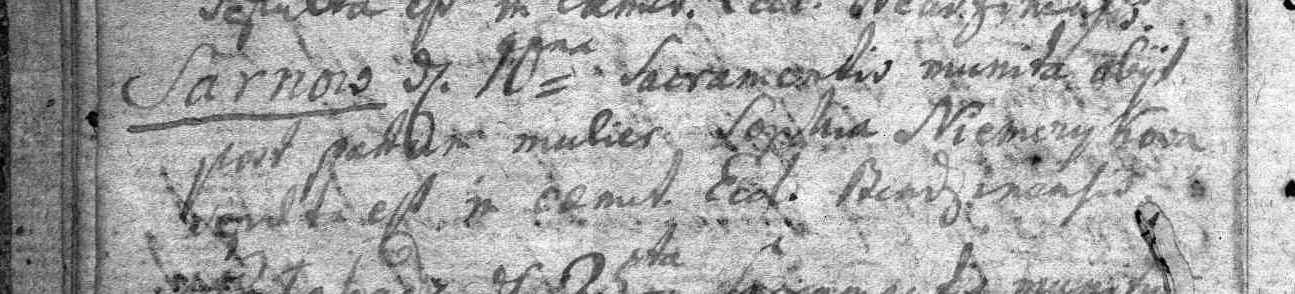 Sepulta est in cemet. Eccl. Bendzinensis.
Sarnow d. 10ma Sacramentis munita obijt
post partum mulier Sophia Niemczykowa
sepulta est in cemet. Eccl. Bendzinensis
munita